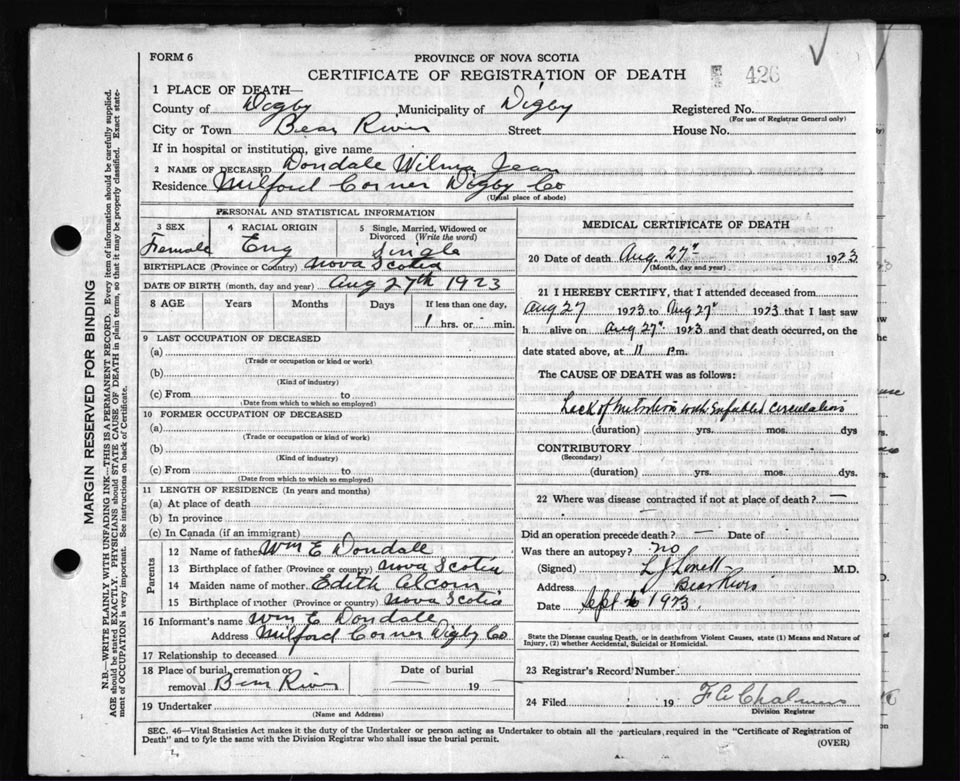 FORM 6
PROVINCE OF NOVA SCOTIA
CERTIFICATE OF REGISTRATION OF DEATH 426
1 PLACE OF DEATH—
County of Digby, Municipality of Digby Registered No.
(For use of Registrar General only)
City or Town Bear River Street House No.
If in hospital or institution, give name
2 NAME OF DECEASED Dondale Wilma Jean
Residence Milford Corner Digby Co
(Usual place of abode)
PERSONAL AND STATISTICAL INFORMATION
3 SEX 4 RACIAL ORIGIN 5 Single, Married, Widowed or Divorced (Write the word)
Female Eng Single
BIRTHPLACE (Province or Country) Nova Scotia
DATE OF BIRTH (month, day and year) Aug 27th 1923
8 AGE Years Months Days If less than one day,
1 hrs. or min.
9 LAST OCCUPATION OF DECEASED
(a)
(Trade or occupation or kind or work)
(b)
(Kind of industry)
(c) From to
(Date from which to which so employed)
10 FORMER OCCUPATION OF DECEASED
(a)
(Trade or occupation or kind of work)
(b)
(Kind of industry)
(c) From to
(Date from which to which so employed)
11 LENGTH OF RESIDENCE (In years and months)
(a) At place of death
(b) In province
(c) In Canada (if an immigrant)
Parents
12 Name of father Wm E Dondale
13 Birthplace of father (Province or country) Nova Scotia
14 Maiden name of mother Edith Alcorn
15 Birthplace of mother (Province or country) Nova Scotia
16 Informant's name Wm E Dondale
Address Milford Corner Digby Co
17 Relationship to deceased
18 Place of burial, cremation or removal Bear River
Date of burial
19
19 Undertaker
(Name and Address)
MEDICAL CERTIFICATE OF DEATH
20 Date of death Aug. 27" 1923
(Month, day and year)
21 I HEREBY CERTIFY, that I attended deceased from
Aug 27 1923 to Aug 27" 1923 that I last saw
h alive on Aug 27" 1923 and that death occurred, on the
date stated above, at 11 Pm.
The CAUSE OF DEATH was as follows:
Lack of nutrition with Enfeebled circulation
(duration) yrs. mos. dys
CONTRIBUTORY
(Secondary)
(duration) yrs. mos. dys.
22 Where was disease contracted if not at place of death? —
Did an operation precede death? — Date of
Was there an autopsy? no
(Signed) L J Lovett M.D.
Address Bear River
Date Sept 1923.
State the Disease causing Death, or in deaths from Violent Causes, state (1) Means and Nature of
Injury, (2) whether Accidental, Suicidal or Homicidal.
23 Registrar's Record Number
24 Filed 19 F A Chalmers
Division Registrar
SEC. 46—Vital Statistics Act makes it the duty of the Undertaker or person acting as Undertaker to obtain all the particulars, required in the "Certificate of Registration of
Death" and to fyle the same with the Division Registrar who shall issue the burial permit. (OVER)
MARGIN RESERVED FOR BINDING
N.B.—WRITE PLAINLY WITH UNFADING INK—THIS IS A PERMANENT RECORD. Every item of information should be carefully supplied.
AGE should be stated EXACTLY. PHYSICIANS should STATE CAUSE OF DEATH in plain terms, so that it may be properly classified. Exact state-
ment of OCCUPATION is very important. See instructions on back of Certificate.